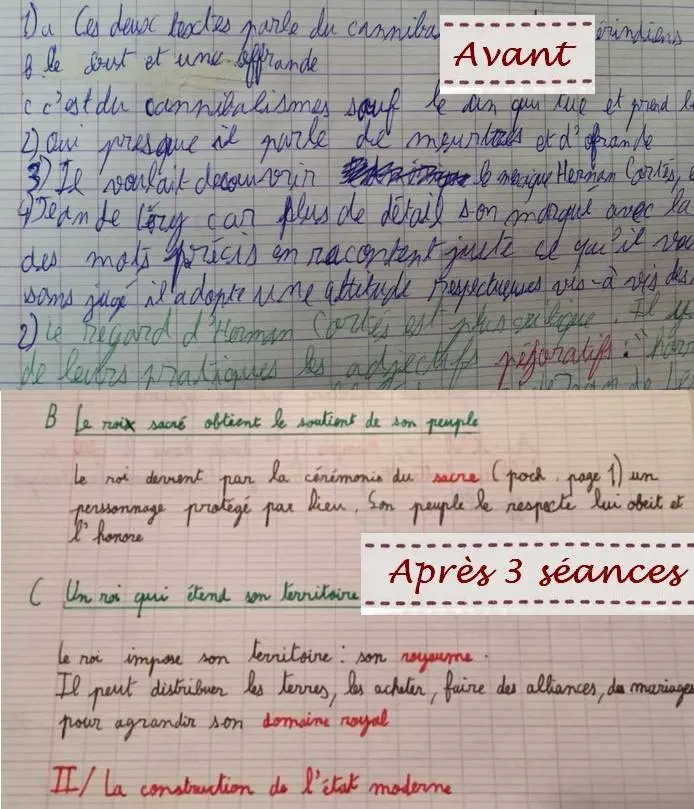 1) a Ces deux textes parle du canniba érindiens
Avant
b le but et une offrande
c c'est du cannibalismes sauf le un qui tue et prend l
2) Oui presque il parle de meurtres et d'ofrande
3) Il voulait decouvrir le mexique Herman Cortés,
4) Jean de Léry car plus de détail son marqué avec la
des mots précis en racontent juste ce qu'il
sans jugé il adopte une attitude respectueuses vis-à vis des
2) Le regard d'Herman Cortés est plus critique. Il
de leurs pratiques les adjectifs péjoratifs : "hor
B Le roi sacré obtient le soutient de son peuple
Le roi devient par la cérémonie du sacre (poch. page 1) un
personnage protégé par Dieu. Son peuple le respecte lui obeit et
l'honore
Après 3 séances
C Un roi qui étend son territoire
Le roi impose son territoire : son royaume.
Il peut distribuer les terres, les acheter, faire des alliances, des mariages
pour agrandir son domaine royal
II/ La construction de l'état moderne